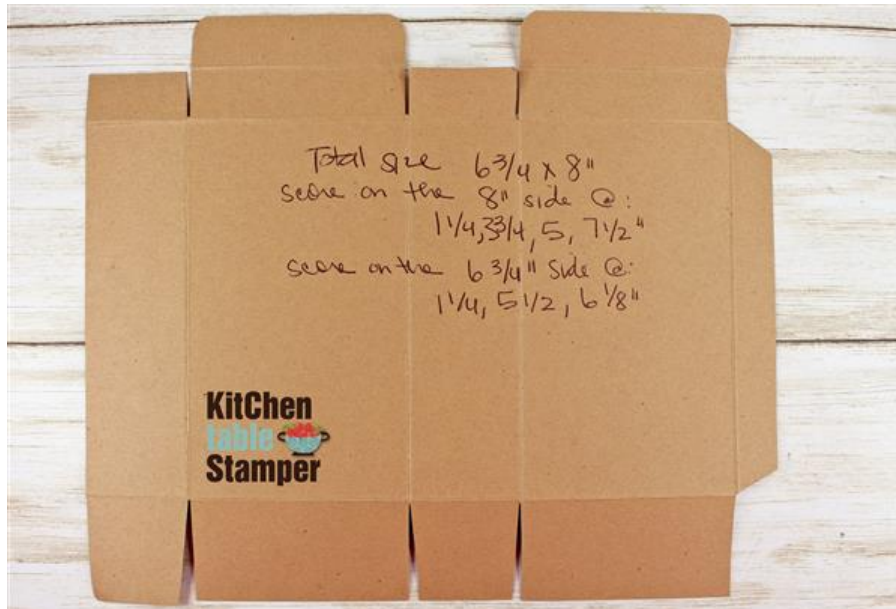 Total size 6 3/4 x 8"
score on the 8" side @:
1 1/4, 3 3/4, 5, 7 1/2"
score on the 6 3/4" side @:
1 1/4, 5 1/2, 6 1/8"
KitChen
table
Stamper